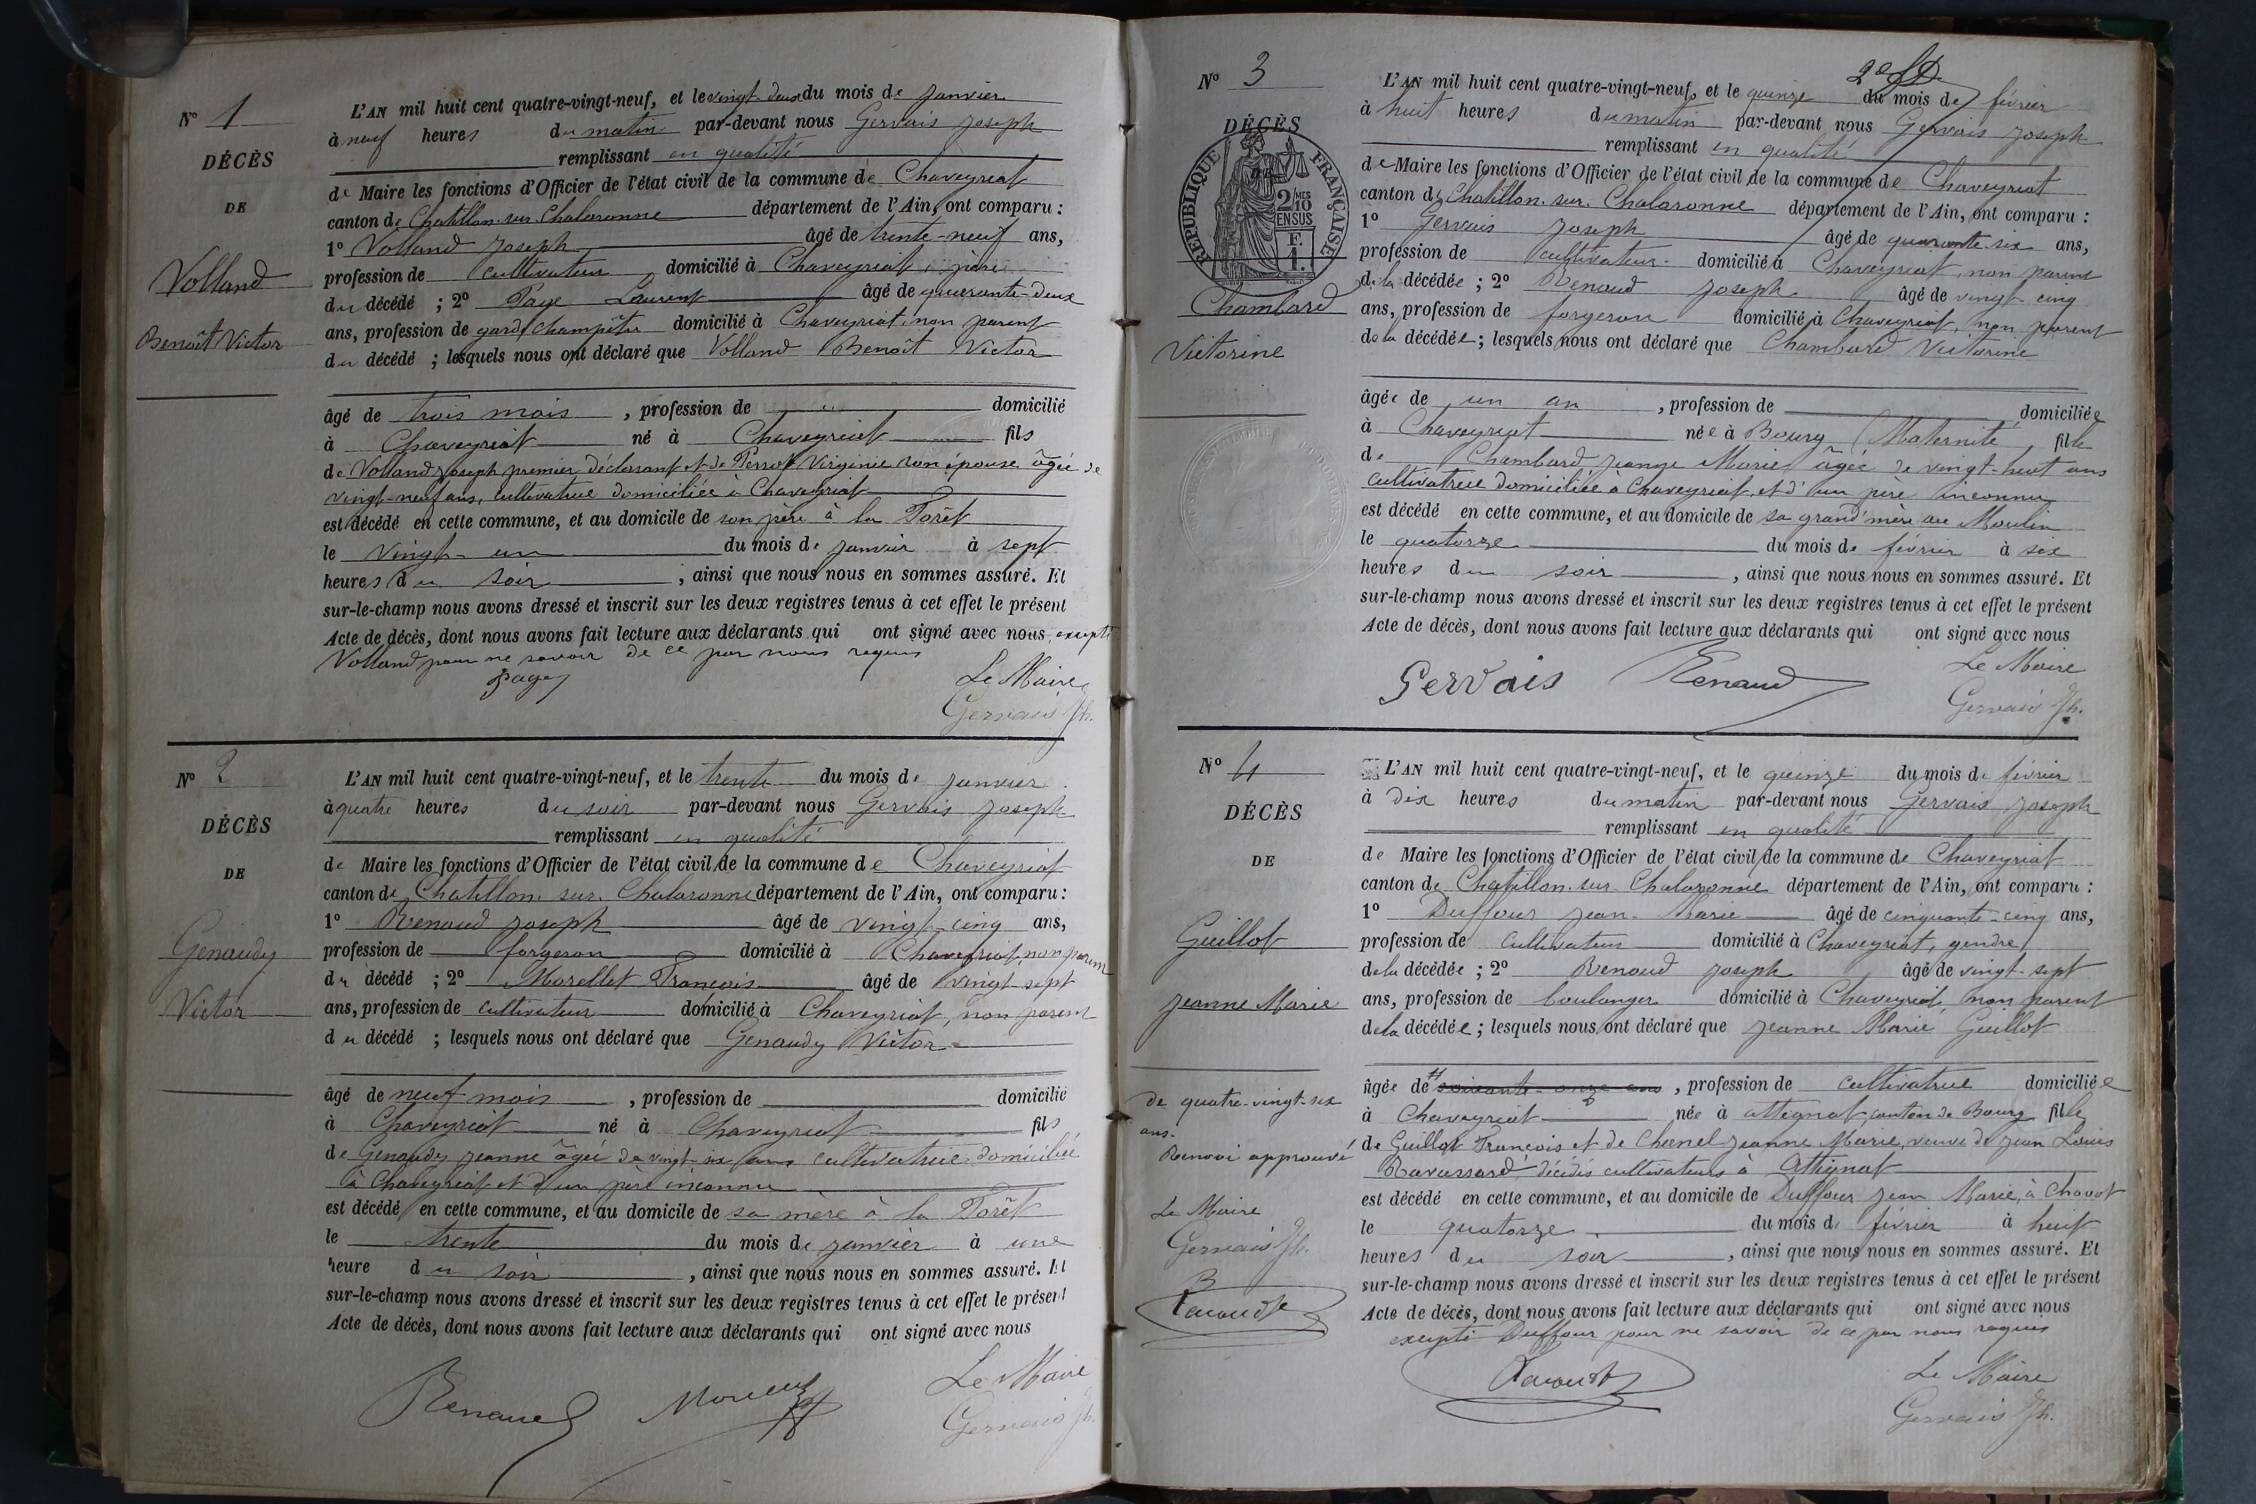 N° 1
DÉCÈS
DE
Volland
Benoît Victor
L'AN mil huit cent quatre-vingt-neuf, et le vingt-deux du mois de janvier
à neuf heures du matin par-devant nous Gervais Joseph
remplissant en qualité
de Maire les fonctions d'Officier de l'état civil de la commune de Chaveyriat
canton de Chatillon sur Chalaronne département de l'Ain, ont comparu :
1° Volland Joseph âgé de trente-neuf ans,
profession de cultivateur domicilié à Chaveyriat, père
du décédé ; 2° Page Laurent âgé de quarante-deux
ans, profession de garde champêtre domicilié à Chaveyriat, non parent
du décédé ; lesquels nous ont déclaré que Volland Benoît Victor
âgé de trois mois , profession de domicilié
à Chaveyriat né à Chaveyriat fils
de Volland Joseph premier déclarant et de Perrot Virginie son épouse âgée de
vingt-neuf ans, cultivatrice domiciliée à Chaveyriat
est décédé en cette commune, et au domicile de son père à la Forêt
le vingt-un du mois de janvier à sept
heures du soir , ainsi que nous nous en sommes assuré. Et
sur-le-champ nous avons dressé et inscrit sur les deux registres tenus à cet effet le présent
Acte de décès, dont nous avons fait lecture aux déclarants qui ont signé avec nous excepté
Volland pour ne savoir de ce par nous requis
Page Le Maire
Gervais Jh.
N° 2
DÉCÈS
DE
Genaudy
Victor
L'AN mil huit cent quatre-vingt-neuf, et le trente du mois de janvier
à quatre heures du soir par-devant nous Gervais Joseph
remplissant en qualité
de Maire les fonctions d'Officier de l'état civil de la commune de Chaveyriat
canton de Chatillon sur Chalaronne département de l'Ain, ont comparu :
1° Renoud Joseph âgé de vingt-cinq ans,
profession de forgeron domicilié à Chaveyriat, non parent
du décédé ; 2° Morellet François âgé de vingt-sept
ans, profession de cultivateur domicilié à Chaveyriat, non parent
du décédé ; lesquels nous ont déclaré que Genaudy Victor
âgé de neuf mois , profession de domicilié
à Chaveyriat né à Chaveyriat fils
de Genaudy Jeanne âgée de vingt-six ans cultivatrice domiciliée
à Chaveyriat et d'un père inconnu
est décédé en cette commune, et au domicile de sa mère à la Forêt
le trente du mois de janvier à une
heure du soir , ainsi que nous nous en sommes assuré. Et
sur-le-champ nous avons dressé et inscrit sur les deux registres tenus à cet effet le présent
Acte de décès, dont nous avons fait lecture aux déclarants qui ont signé avec nous
Le Maire
Renaud Gervais Jh.
N° 3
DÉCÈS
DE
RÉPUBLIQUE FRANÇAISE
2 MES
10
EN SUS
F.
1.
Chambard
Victorine
L'AN mil huit cent quatre-vingt-neuf, et le quinze du mois de février
à huit heures du matin par-devant nous Gervais Joseph
remplissant en qualité
de Maire les fonctions d'Officier de l'état civil de la commune de Chaveyriat
canton de Chatillon sur Chalaronne département de l'Ain, ont comparu :
1° Gervais Joseph âgé de quarante-six ans,
profession de cultivateur domicilié à Chaveyriat, non parent
de la décédée ; 2° Renoud Joseph âgé de vingt-cinq
ans, profession de forgeron domicilié à Chaveyriat, non parent
de la décédée ; lesquels nous ont déclaré que Chambard Victorine
âgée de un an , profession de domiciliée
à Chaveyriat née à Bourg (Maternité) fille
de Chambard Jeanne Marie âgée de vingt-huit ans
cultivatrice domiciliée à Chaveyriat, et d'un père inconnu
est décédé en cette commune, et au domicile de sa grand'mère au Moulin
le quatorze du mois de février à six
heures du soir , ainsi que nous nous en sommes assuré. Et
sur-le-champ nous avons dressé et inscrit sur les deux registres tenus à cet effet le présent
Acte de décès, dont nous avons fait lecture aux déclarants qui ont signé avec nous
Gervais Renaud Le Maire
Gervais Jh.
N° 4
DÉCÈS
DE
Guillot
Jeanne Marie
de quatre-vingt-six
ans.
Renvoi approuvé
Le Maire
Gervais Jh.
L'AN mil huit cent quatre-vingt-neuf, et le quinze du mois de février
à dix heures du matin par-devant nous Gervais Joseph
remplissant en qualité
de Maire les fonctions d'Officier de l'état civil de la commune de Chaveyriat
canton de Chatillon sur Chalaronne département de l'Ain, ont comparu :
1° Duffour Jean-Marie âgé de cinquante-cinq ans,
profession de cultivateur domicilié à Chaveyriat, gendre
de la décédée ; 2° Renoud Joseph âgé de vingt-sept
ans, profession de boulanger domicilié à Chaveyriat, non parent
de la décédée ; lesquels nous ont déclaré que Jeanne Marie Guillot
âgée de soixante-onze ans , profession de cultivatrice domiciliée
à Chaveyriat née à Attignat, canton de Bourg fille
de Guillot François et de Chanel Jeanne Marie, veuve de Jean Louis
Ravassard décédés cultivateurs à Attignat
est décédé en cette commune, et au domicile de Duffour Jean Marie, à Chavot
le quatorze du mois de février à huit
heures du soir , ainsi que nous nous en sommes assuré. Et
sur-le-champ nous avons dressé et inscrit sur les deux registres tenus à cet effet le présent
Acte de décès, dont nous avons fait lecture aux déclarants qui ont signé avec nous
excepté Duffour pour ne savoir de ce par nous requis
Le Maire
Gervais Jh.